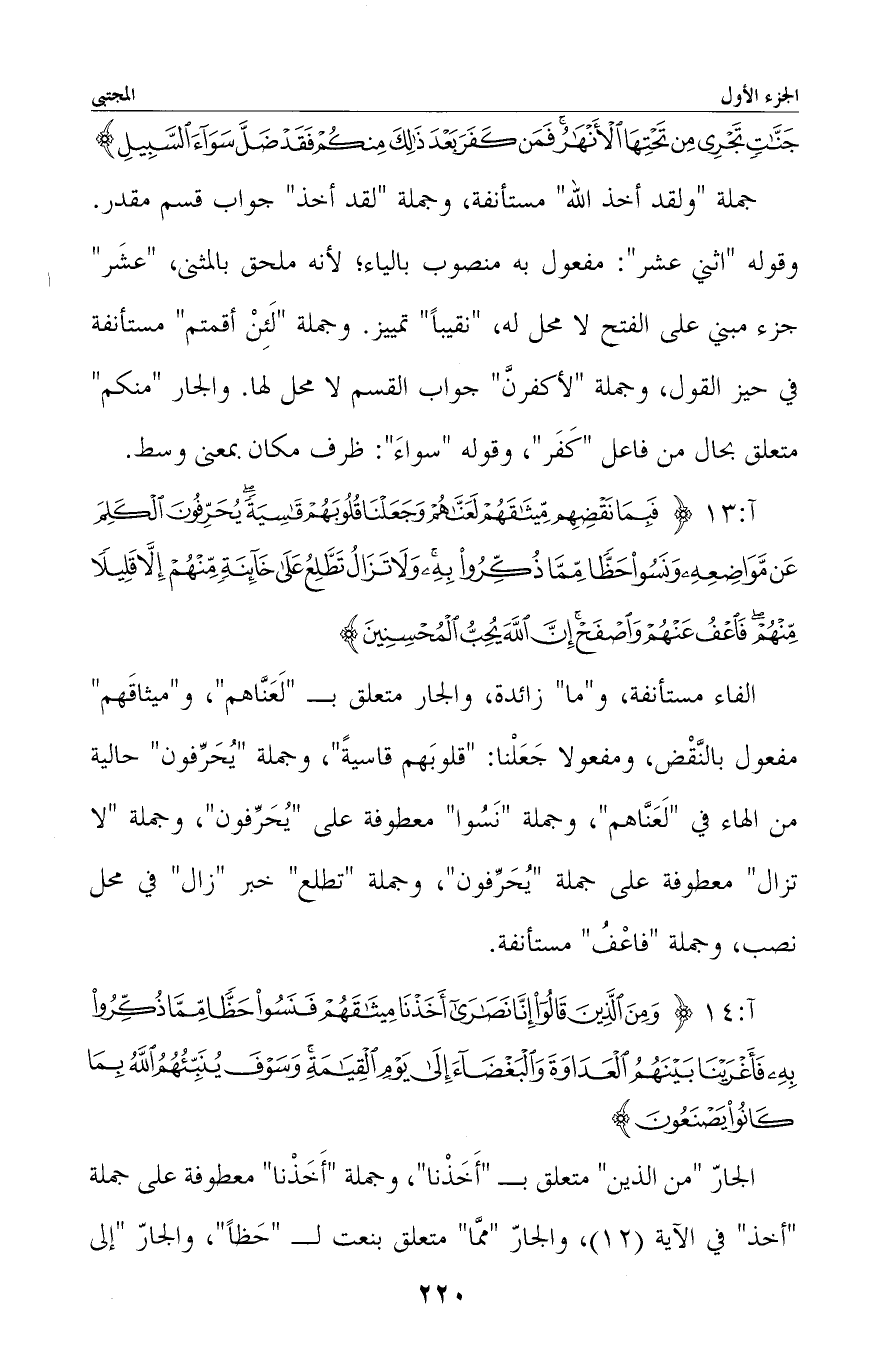 الجزء الأول
المجتبى
جَنَّٰتٖ تَجۡرِي مِن تَحۡتِهَا ٱلۡأَنۡهَٰرُۚ فَمَن كَفَرَ بَعۡدَ ذَٰلِكَ مِنكُمۡ فَقَدۡ ضَلَّ سَوَآءَ ٱلسَّبِيلِ ﴾
جملة "ولقد أخذ الله" مستأنفة، وجملة "لقد أخذ" جواب قسم مقدر.
وقوله "اثني عشر": مفعول به منصوب بالياء؛ لأنه ملحق بالمثنى، "عشَر"
جزء مبني على الفتح لا محل له، "نقيباً" تمييز. وجملة "لَئِنْ أقمتم" مستأنفة
في حيز القول، وجملة "لأكفرنَّ" جواب القسم لا محل لها. والجار "منكم"
متعلق بحال من فاعل "كَفَر"، وقوله "سواءَ": ظرف مكان بمعنى وسط.
آ:١٣ ﴿ فَبِمَا نَقۡضِهِم مِّيثَٰقَهُمۡ لَعَنَّٰهُمۡ وَجَعَلۡنَا قُلُوبَهُمۡ قَٰسِيَةٗۖ يُحَرِّفُونَ ٱلۡكَلِمَ
عَن مَّوَاضِعِهِۦ وَنَسُواْ حَظّٗا مِّمَّا ذُكِّرُواْ بِهِۦۚ وَلَا تَزَالُ تَطَّلِعُ عَلَىٰ خَآئِنَةٖ مِّنۡهُمۡ إِلَّا قَلِيلٗا
مِّنۡهُمۡۖ فَٱعۡفُ عَنۡهُمۡ وَٱصۡفَحۡۚ إِنَّ ٱللَّهَ يُحِبُّ ٱلۡمُحۡسِنِينَ ﴾
الفاء مستأنفة، و"ما" زائدة، والجار متعلق بـ "لَعَنَّاهم"، و"ميثاقَهم"
مفعول بالنَّقْض، ومفعولا جَعَلْنا: "قلوبَهم قاسيةً"، وجملة "يُحَرِّفون" حالية
من الهاء في "لَعَنَّاهم"، وجملة "نَسُوا" معطوفة على "يُحَرِّفون"، وجملة "لا
تزال" معطوفة على جملة "يُحَرِّفون"، وجملة "تطلع" خبر "زال" في محل
نصب، وجملة "فاعْفُ" مستأنفة.
آ:١٤ ﴿ وَمِنَ ٱلَّذِينَ قَالُوٓاْ إِنَّا نَصَٰرَىٰٓ أَخَذۡنَا مِيثَٰقَهُمۡ فَنَسُواْ حَظّٗا مِّمَّا ذُكِّرُواْ
بِهِۦ فَأَغۡرَيۡنَا بَيۡنَهُمُ ٱلۡعَدَاوَةَ وَٱلۡبَغۡضَآءَ إِلَىٰ يَوۡمِ ٱلۡقِيَٰمَةِۚ وَسَوۡفَ يُنَبِّئُهُمُ ٱللَّهُ بِمَا
كَانُواْ يَصۡنَعُونَ ﴾
الجارّ "من الذين" متعلق بـ "أَخَذْنا"، وجملة "أَخَذْنا" معطوفة على جملة
"أخذ" في الآية (١٢)، والجارّ "ممَّا" متعلق بنعت لـ "حَظاً"، والجارّ "إلى
٢٢٠